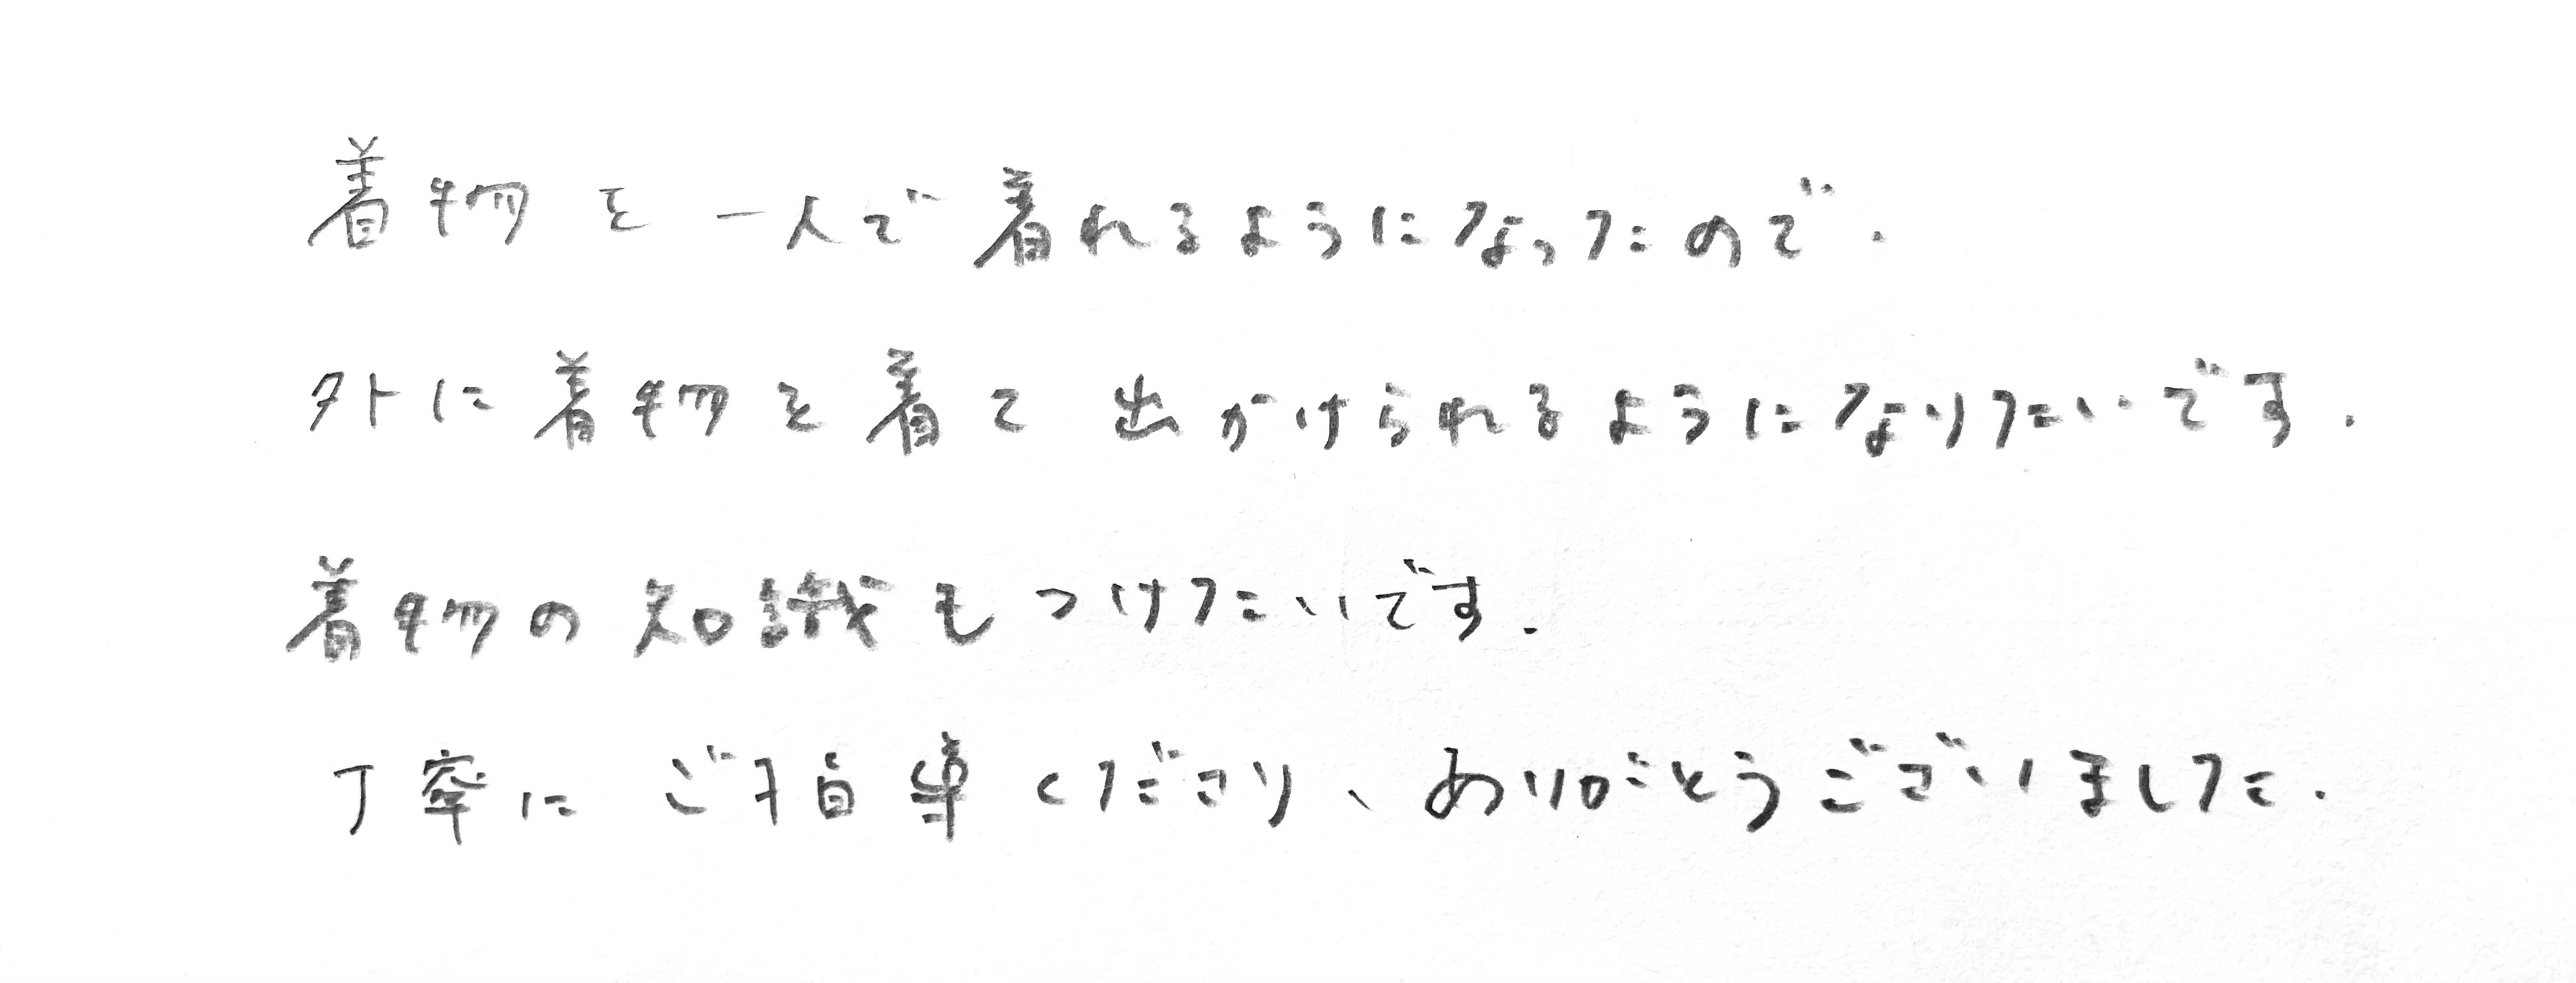 着物を一人で着れるようになったので.
外に着物を着て出かけられるようになりたいです.
着物の知識もつけたいです.
丁寧にご指導くださり、ありがとうございました.